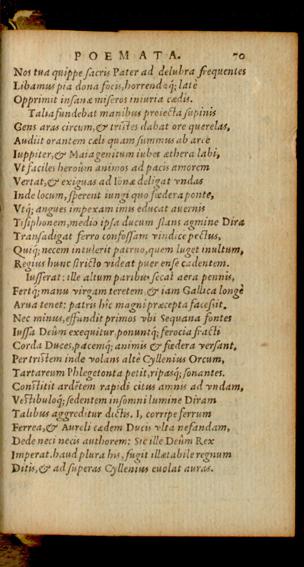 POEMATA. 70
Nos tua quippe sacris Pater ad delubra frequentes
Libamus pia dona focis, horrendaq; latè
Opprimit insanæ miseros iniuria cædis.
Talia fundebat manibus proiecta supinis
Gens aras circum, & tristes dabat ore querelas,
Audiit orantem cæli quam summus ab arce
Iuppiter, & Maia genitum iubet æthera labi,
Vt faciles heroûm animos ad pacis amorem
Vertat, & exiguas ad deligat vndas
Inde locum, sperent iungi quo fœdera ponte,
Vtq; angues impexam imis educat auernis
Tisiphonem, medio ipsa ducum stans agmine Dira
Transadigat ferro confossam vindice pectus,
Ouiq; necem intulerit patruo, quem luget inultum,
Regius hunc stricto videat puer ense cadentem.
Iusserat: ille altum paribus secat aera pennis,
Fertq; manu virgam teretem, & iam Gallica longè
Arua tenet: patris hîc magni præcepta facessit,
Nec minus, effundit primos vbi Sequana fontes
Iussa Deûm exequitur. ponuntq; ferocia fracti
Corda Duces, pacemq; animis & fœdera versant,
Per tristem inde volans altè Cyllenius Orcum,
Tartareum Phlegetonta petit, ripasq; sonantes.
Constitit ardẽtem rapidi citus amnis ad vndam,
Vestibuloq; sedentem insomni lumine Diram
Talibus aggreditur dictis. I, corripe ferrum
Ferrea, & Aureli cædem Ducis vlta nefandam,
Dede neci necis authorem: Sic ille Deûm Rex
Imperat. haud plura his, fugit illætabile regnum
Ditis, & ad superas Cyllenius euolat auras.